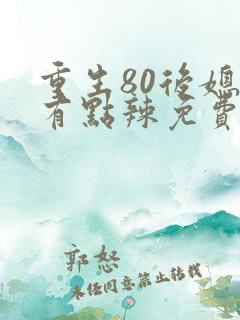 重生80後媳
有點辣免費
郭怒
未经同意禁止转载